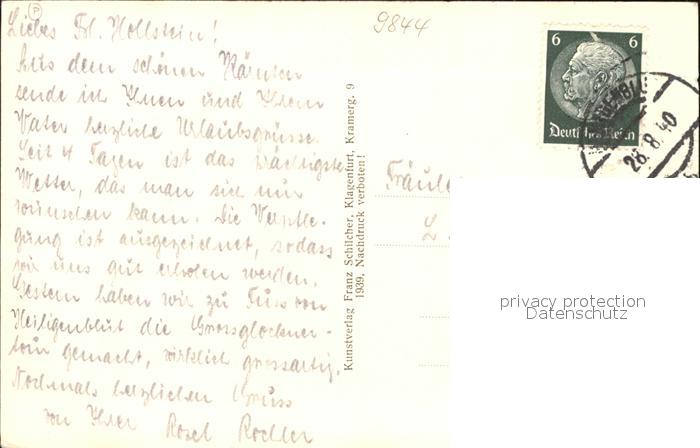 Liebes Frl. Hollstein!
Aus dem schönen Kärnten
sende ich Ihnen und Ihrem
Vater herzliche Urlaubsgrüsse.
Seit 4 Tagen ist das prächtigste
Wetter, das man sich nur
wünschen kann. Die Verpfle-
gung ist ausgezeichnet, sodass
wir uns gut erholen werden.
Gestern haben wir zu Fuss von
Heiligenblut die Grossglockner-
tour gemacht, wirklich grossartig.
Nochmals herzlichen Gruss
von Ihrer Rosel
9844
Kunstverlag Franz Schilcher, Klagenfurt, Kramerg. 9
1939, Nachdruck verboten!
6 6
Deutsches Reich
28.8.40
P
privacy protection
Datenschutz